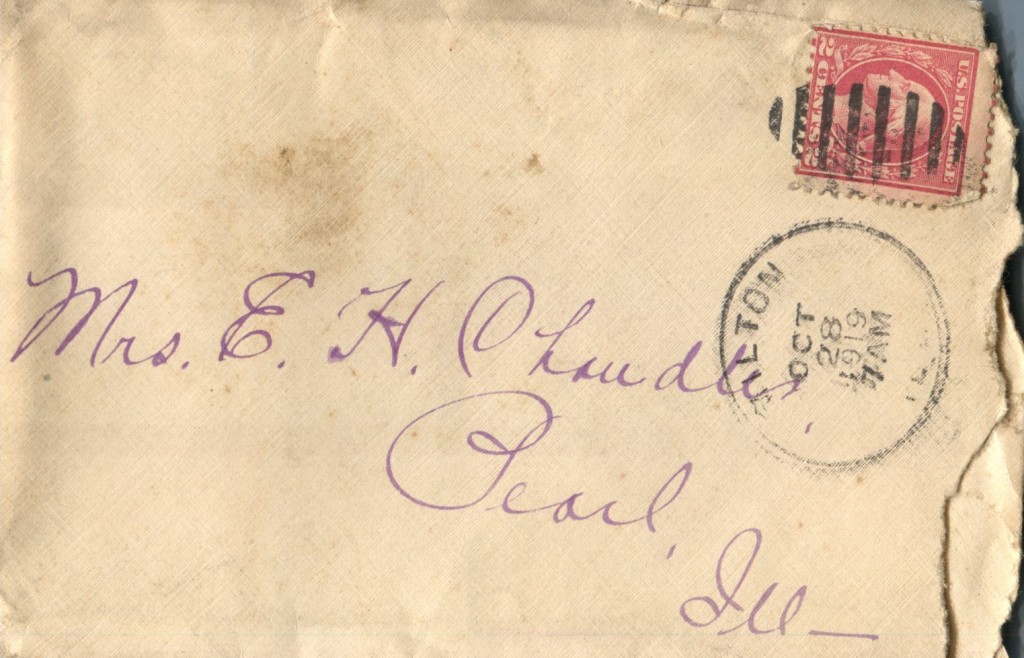 U.S. POSTAGE
2 CENTS 2
ALTON
OCT
28
1919
7 AM
ILL.
Mrs. E. H. Chandler,
Pearl,
Ill—